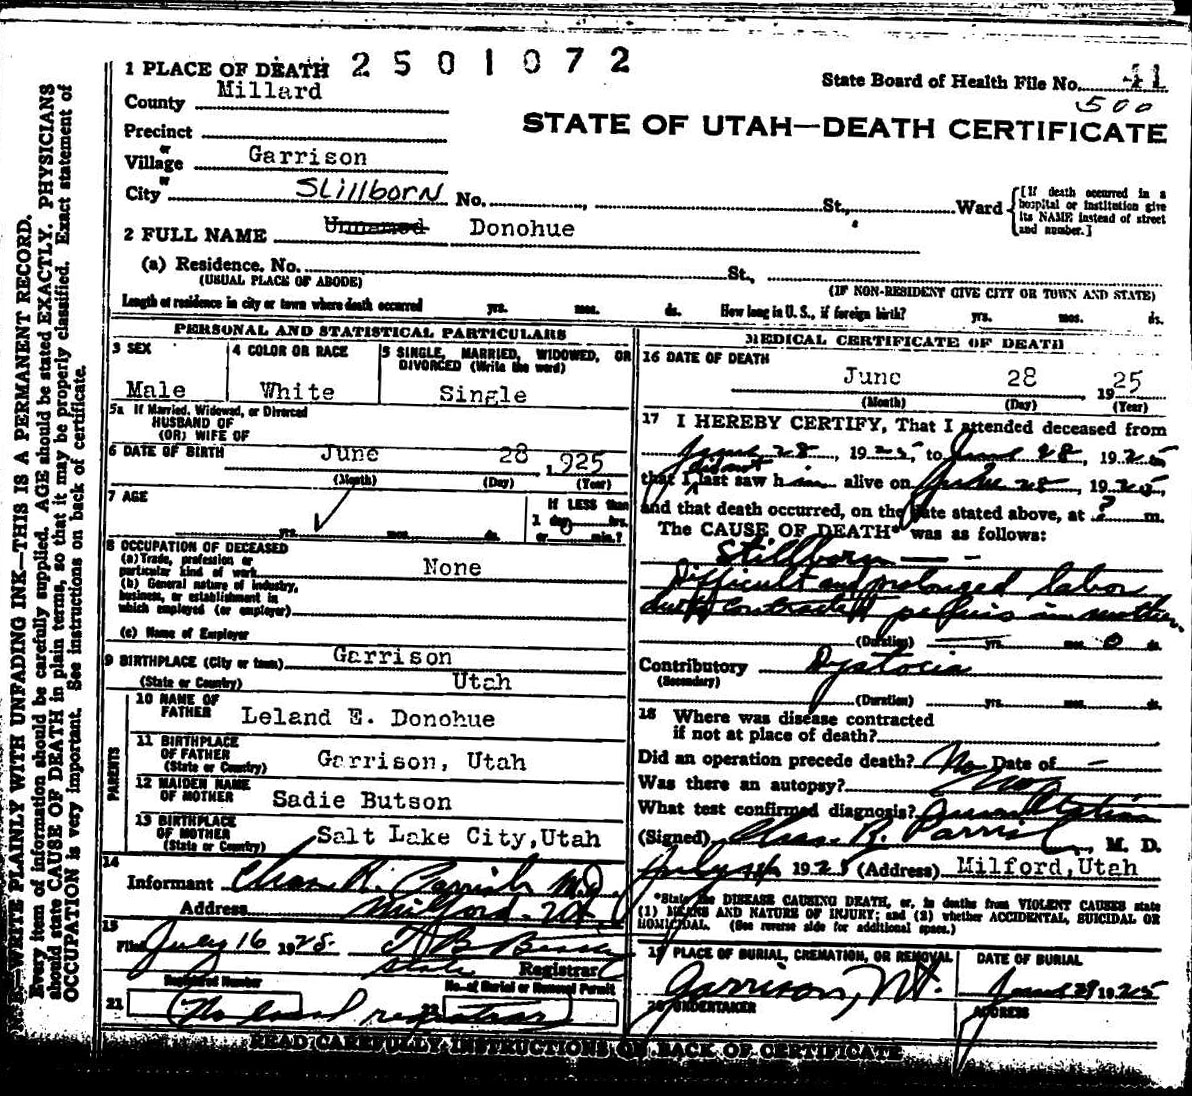 1 PLACE OF DEATH 2501072
State Board of Health File No. 41
County Millard
500
STATE OF UTAH—DEATH CERTIFICATE
Precinct
or
Village Garrison
or
City Stillborn No. , St., Ward {[If death occurred in a hospital or institution give its NAME instead of street and number.]
2 FULL NAME Unnamed Donohue
(a) Residence. No. St.,
(USUAL PLACE OF ABODE) (IF NON-RESIDENT GIVE CITY OR TOWN AND STATE)
Length of residence in city or town where death occurred yrs. mos. ds. How long in U. S., if foreign birth? yrs. mos. ds.
PERSONAL AND STATISTICAL PARTICULARS
3 SEX 4 COLOR OR RACE 5 SINGLE, MARRIED, WIDOWED, OR
DIVORCED (Write the word)
Male White Single
5a If Married, Widowed, or Divorced
HUSBAND OF
(OR) WIFE OF
6 DATE OF BIRTH June 28 1925
(Month) (Day) (Year)
7 AGE If LESS than
yrs. mos. ds. 1 day 0 hrs.
or min.?
8 OCCUPATION OF DECEASED
(a) Trade, profession or
particular kind of work None
(b) General nature of industry,
business, or establishment in
which employed (or employer)
(c) Name of Employer
9 BIRTHPLACE (City or town) Garrison
(State or Country) Utah
PARENTS
10 NAME OF
FATHER Leland E. Donohue
11 BIRTHPLACE
OF FATHER
(State or Country) Garrison, Utah
12 MAIDEN NAME
OF MOTHER Sadie Butson
13 BIRTHPLACE
OF MOTHER
(State or Country) Salt Lake City, Utah
14
Informant Chas. R. Parrish M.D.
Address Milford. Ut
15
Filed July 16 1925.
State Registrar
Registered Number No. of Burial or Removal Permit
21 No local registrar 22
MEDICAL CERTIFICATE OF DEATH
16 DATE OF DEATH
June 28, 1925
(Month) (Day) (Year)
17 I HEREBY CERTIFY, That I attended deceased from
June 28, 1925, to June 28, 1925
did not
that I last saw him alive on June 28, 1925,
and that death occurred, on the date stated above, at ? m.
The CAUSE OF DEATH* was as follows:
Stillborn
Difficult and prolonged labor
due to contracted pelvis in mother.
(Duration) yrs. mos. 0 ds.
Contributory Dystocia
(Secondary)
(Duration) yrs. mos. ds.
18 Where was disease contracted
if not at place of death?
Did an operation precede death? No Date of —
Was there an autopsy? No
What test confirmed diagnosis?
(Signed) Chas. R. Parrish, M. D.
July 14 1925 (Address) Milford, Utah
*State the DISEASE CAUSING DEATH, or, in deaths from VIOLENT CAUSES state
(1) MEANS AND NATURE OF INJURY; and (2) whether ACCIDENTAL, SUICIDAL OR
HOMICIDAL. (See reverse side for additional space.)
19 PLACE OF BURIAL, CREMATION, OR REMOVAL DATE OF BURIAL
Garrison, Ut. June 29 1925
20 UNDERTAKER ADDRESS
READ CAREFULLY INSTRUCTIONS ON BACK OF CERTIFICATE
N.B.—WRITE PLAINLY WITH UNFADING INK—THIS IS A PERMANENT RECORD.
Every item of information should be carefully supplied. AGE should be stated EXACTLY. PHYSICIANS
should state CAUSE OF DEATH in plain terms, so that it may be properly classified. Exact statement of
OCCUPATION is very important. See instructions on back of certificate.